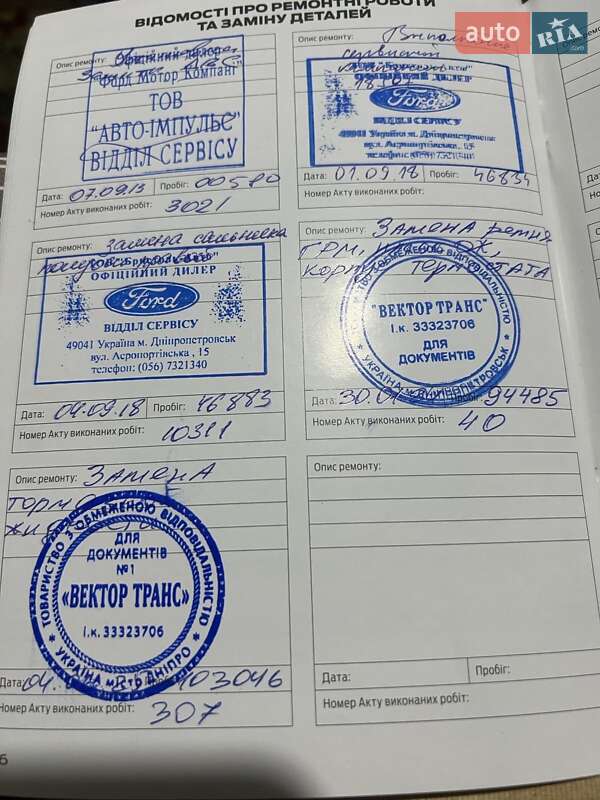 ВІДОМОСТІ ПРО РЕМОНТНІ РОБОТИ
ТА ЗАМІНУ ДЕТАЛЕЙ
auto RIA .com
Опис ремонту:
Офіційний дилер
"Форд Мотор Компані"
ТОВ
"АВТО-ІМПУЛЬС"
ВІДДІЛ СЕРВІСУ
Дата: 07.09.13 Пробіг: 00580
Номер Акту виконаних робіт: 3021
Опис ремонту:
18307
ОФІЦІЙНИЙ ДИЛЕР
Ford
ВІДДІЛ СЕРВІСУ
49041 Україна м. Дніпропетровськ
вул. Аеропортівська, 15
телефон: (056) 7321340
Дата: 01.09.18 Пробіг: 46834
Номер Акту виконаних робіт:
Опис ремонту: замена сальника
ОФІЦІЙНИЙ ДИЛЕР
Ford
ВІДДІЛ СЕРВІСУ
49041 Україна м. Дніпропетровськ
вул. Аеропортівська , 15
телефон: (056) 7321340
Дата: 04.09.18 Пробіг: 46883
Номер Акту виконаних робіт: 10311
Опис ремонту: Замена ремня
ГРМ, ОЖ,
термостата
"ВЕКТОР ТРАНС"
І.к. 33323706
ДЛЯ
ДОКУМЕНТІВ
Дата: 30.01 94485
Номер Акту виконаних робіт: 40
Опис ремонту: Замена
ТОВАРИСТВО З ОБМЕЖЕНОЮ ВІДПОВІДАЛЬНІСТЮ
ДЛЯ
ДОКУМЕНТІВ
№1
«ВЕКТОР ТРАНС»
І.к. 33323706
УКРАЇНА місто ДНІПРО
Дата: 04. 103046
Номер Акту виконаних робіт: 307
Опис ремонту:
Дата: Пробіг:
Номер Акту виконаних робіт: